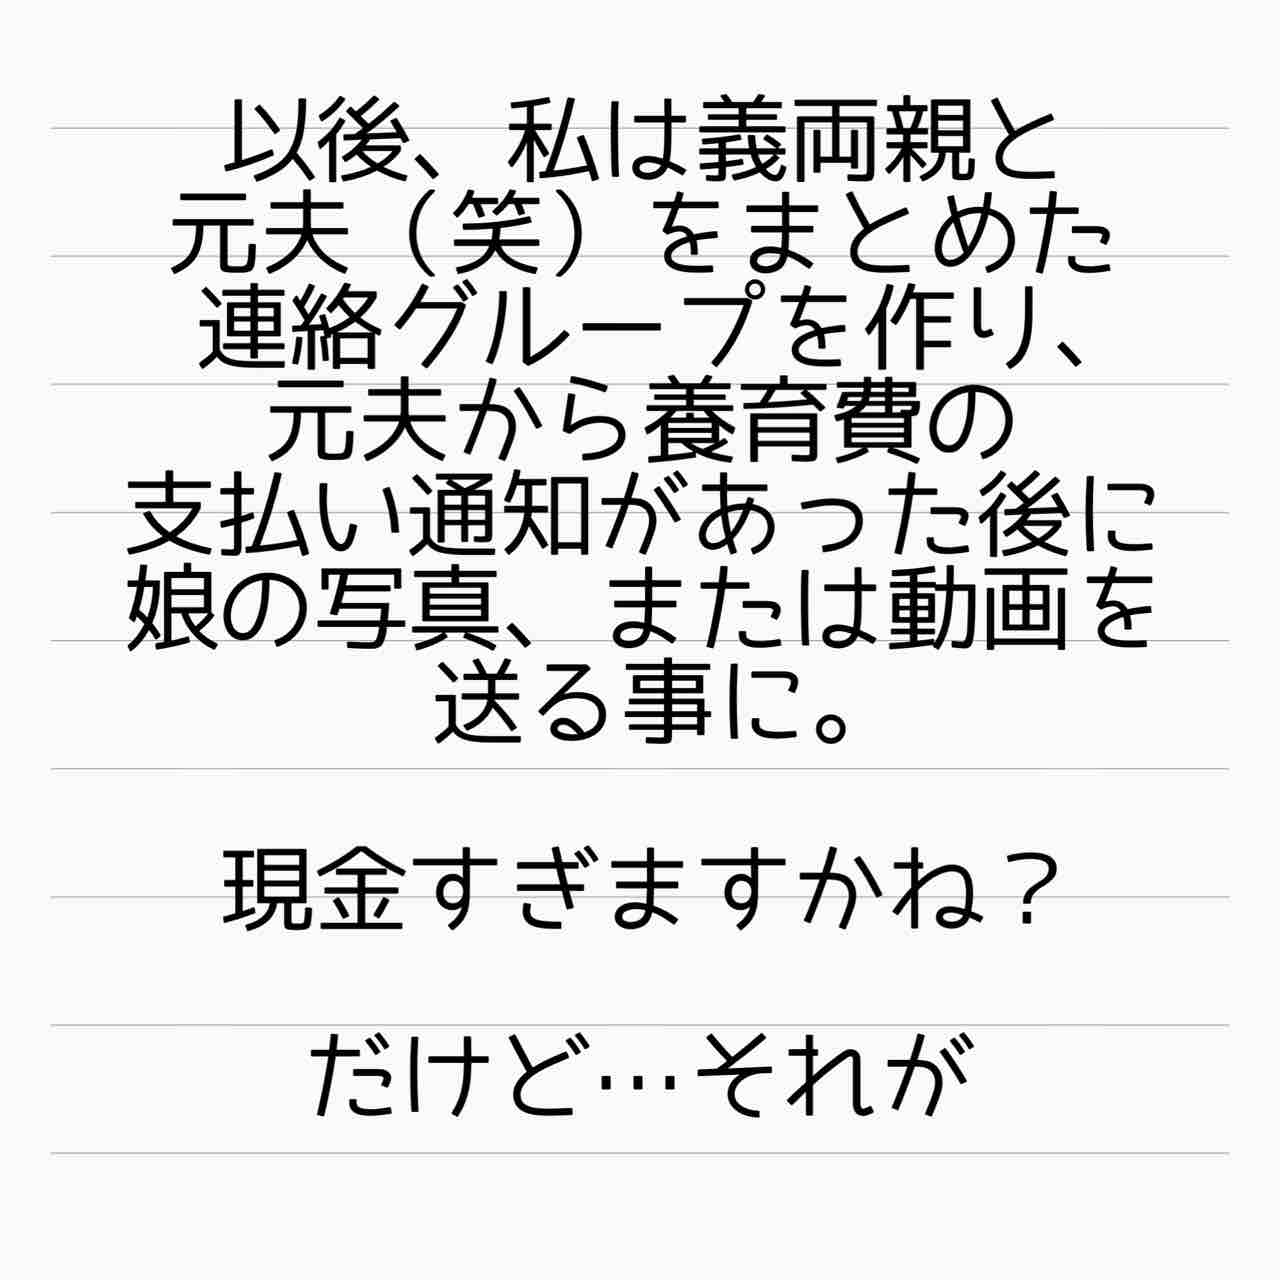 以後、私は義両親と
元夫（笑）をまとめた
連絡グループを作り、
元夫から養育費の
支払い通知があった後に
娘の写真、または動画を
送る事に。
現金すぎますかね？
だけど…それが